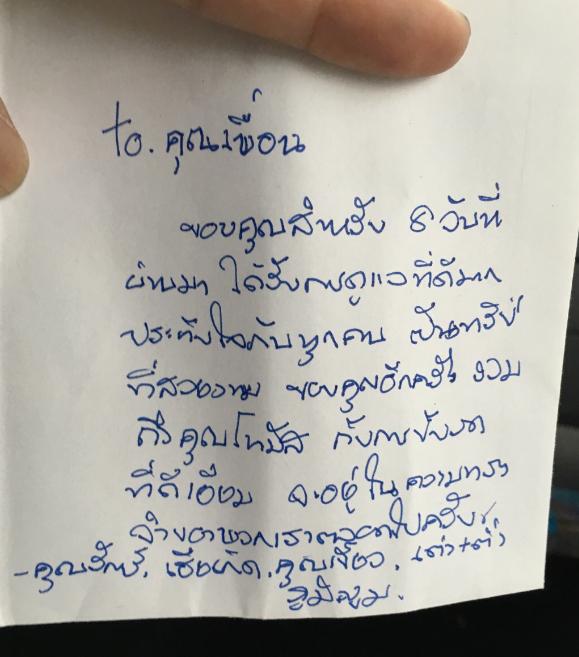 to. คุณเขื่อน
ขอบคุณสำหรับ 8 วันที่
ผ่านมา ได้รับการดูแลที่ดีมาก
ประทับใจกับทุกคน เป็นทริป
ที่สวยงาม ขอบคุณอีกครั้ง รวม
ถึง คุณโทมัส กับการขับรถ
ที่ดีเยี่ยม จะอยู่ในความทรง
จำของพวกเราตลอดไปครับ